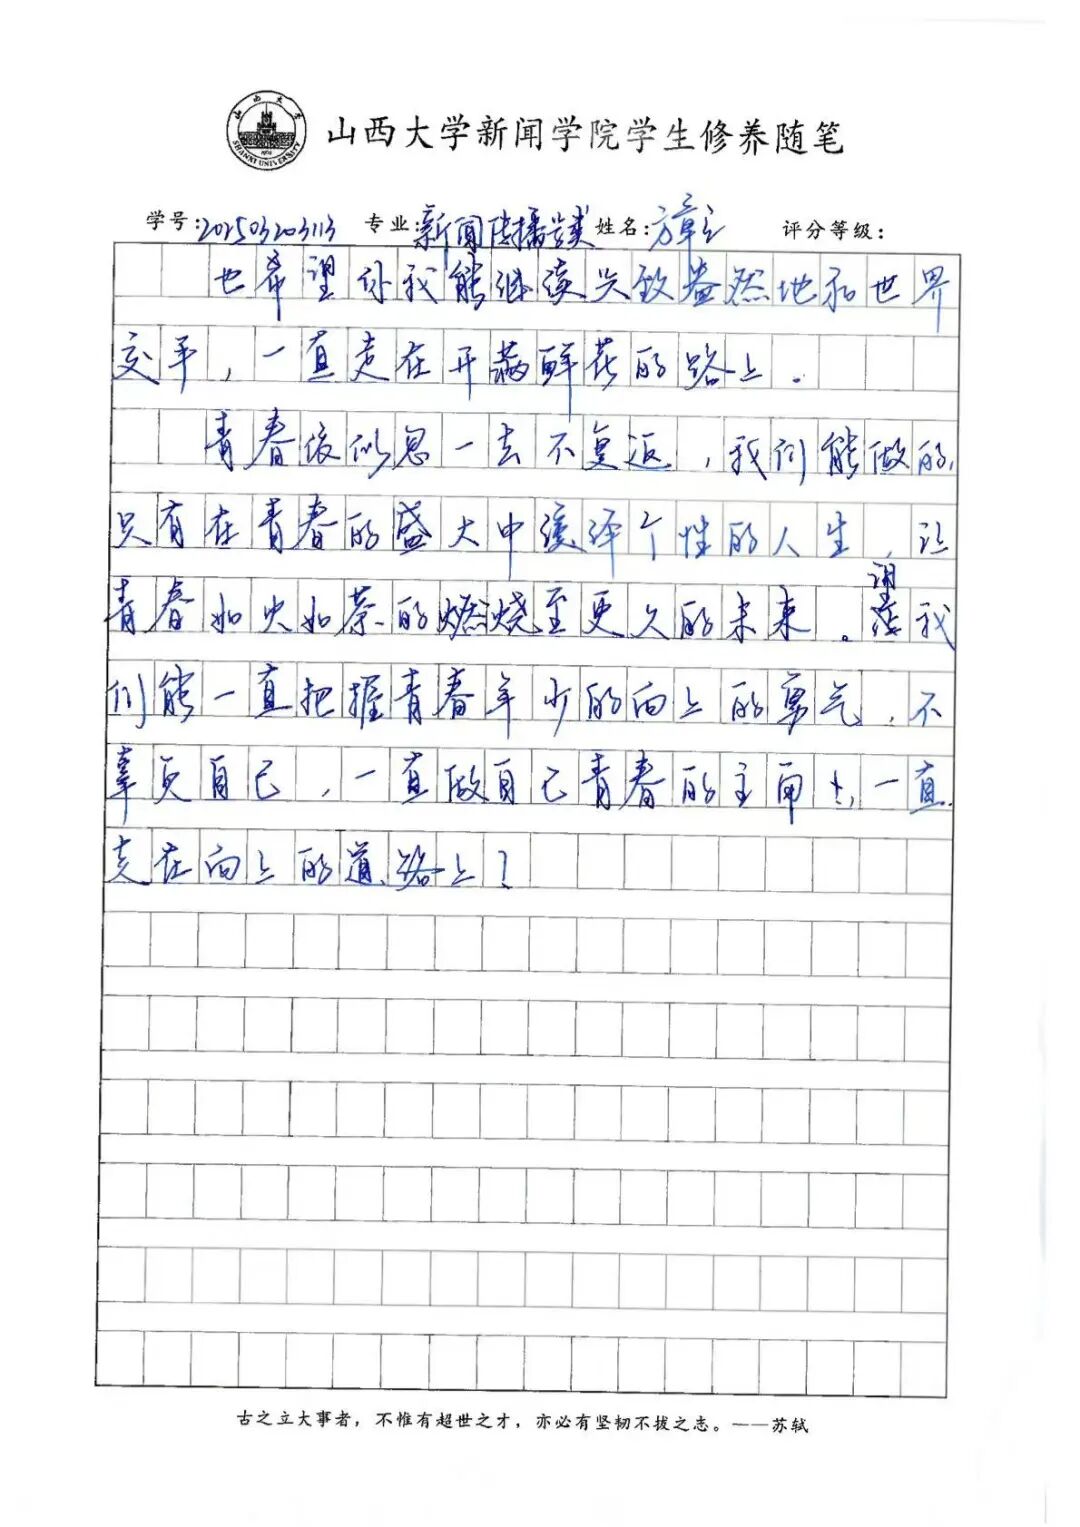 山西大学
SHANXI UNIVERSITY
1902
山西大学新闻学院学生修养随笔
学号:202503203113 专业:新闻传播学类 姓名:方章立 评分等级:
也希望你我能继续兴致盎然地和世界
交手,一直走在开满鲜花的路上.
青春倏似忽一去不复返,我们能做的,
只有在青春的盛大中演绎个性的人生,让
青春如火如荼的燃烧至更久的未来。望我
们能一直把握青春年少的向上的勇气,不
辜负自己,一直做自己青春的主角,一直
走在向上的道路上!
古之立大事者,不惟有超世之才,亦必有坚韧不拔之志。——苏轼